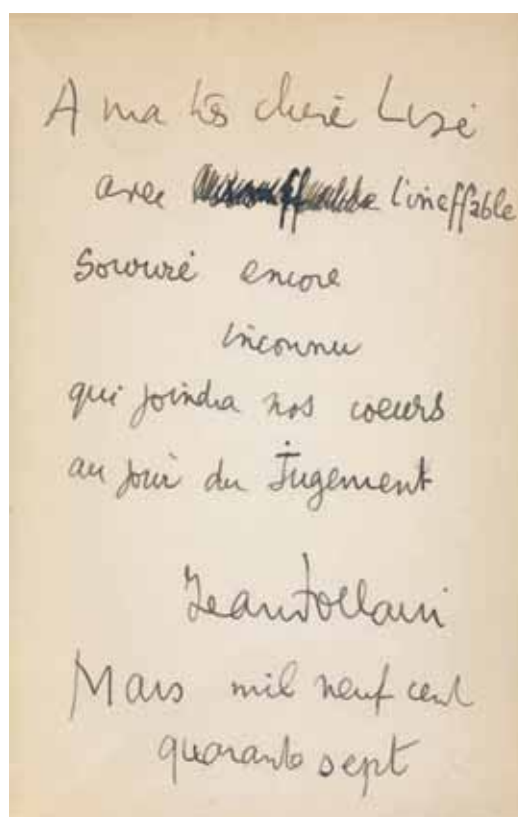 A ma très chère Lise
avec l'ineffable
sourire encore
inconnu
qui joindra nos coeurs
au jour du Jugement
Jean Follain
Mars mil neuf cent
quarante sept